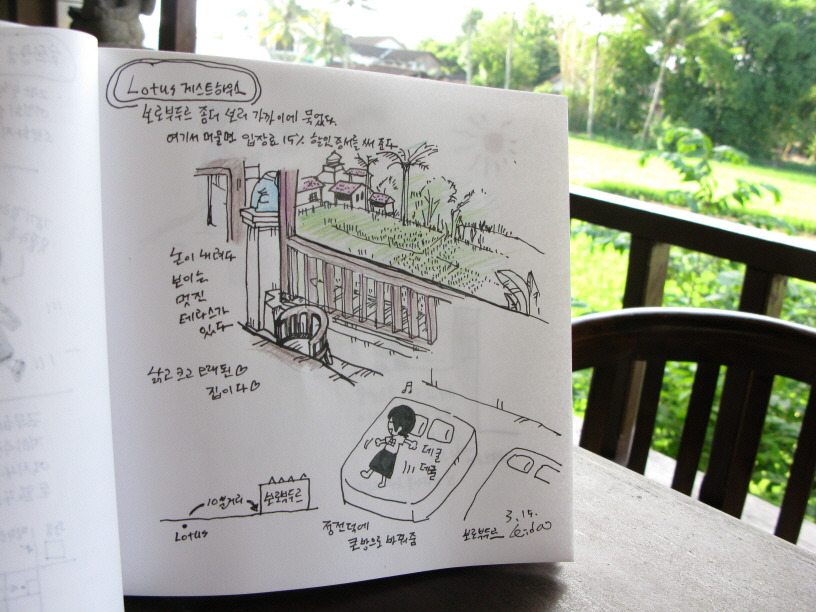 Lotus 게스트하우스
보로부두르 좀더 보러 가까이에 묵었다.
여기서 머물면 입장료 15% 할인증서를 써 준다
논이 내려다
보이는
멋진
테라스가
있다
낡고 크고 오래된
집이다
데굴
데굴
10분거리
보로부두르
Lotus
정전덕에
큰방으로 바꿔줌
3.15.
보로부두르